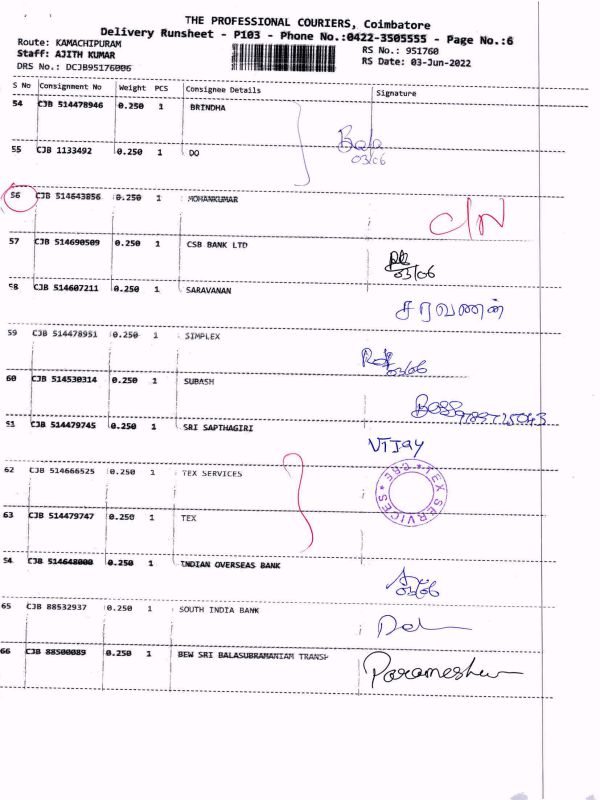 THE PROFESSIONAL COURIERS, Coimbatore
Delivery Runsheet - P103 - Phone No.:0422-3505555 - Page No.:6
Route: KAMACHIPURAM
RS No.: 951760
Staff: AJITH KUMAR
RS Date: 03-Jun-2022
DRS No.: DCJB95176006
S No Consignment No Weight PCS Consignee Details Signature
54 CJB 514478946 0.250 1 BRINDHA
55 CJB 1133492 0.250 1 DO
03/06
56 CJB 514643856 0.250 1 MOHANKUMAR C/N
57 CJB 514690509 0.250 1 CSB BANK LTD
03/06
58 CJB 514607211 0.250 1 SARAVANAN
சரவணன்
59 CJB 514478951 0.250 1 SIMPLEX
03/06
60 CJB 514530314 0.250 1 SUBASH
61 CJB 514479745 0.250 1 SRI SAPTHAGIRI
VIJAY
62 CJB 514666525 0.250 1 TEX SERVICES
TEX SERVICES
63 CJB 514479747 0.250 1 TEX
64 CJB 514648000 0.250 1 INDIAN OVERSEAS BANK
03/06
65 CJB 88532937 0.250 1 SOUTH INDIA BANK
66 CJB 88500089 0.250 1 BEW SRI BALASUBRAMANIAM TRANSP
Parameshwar